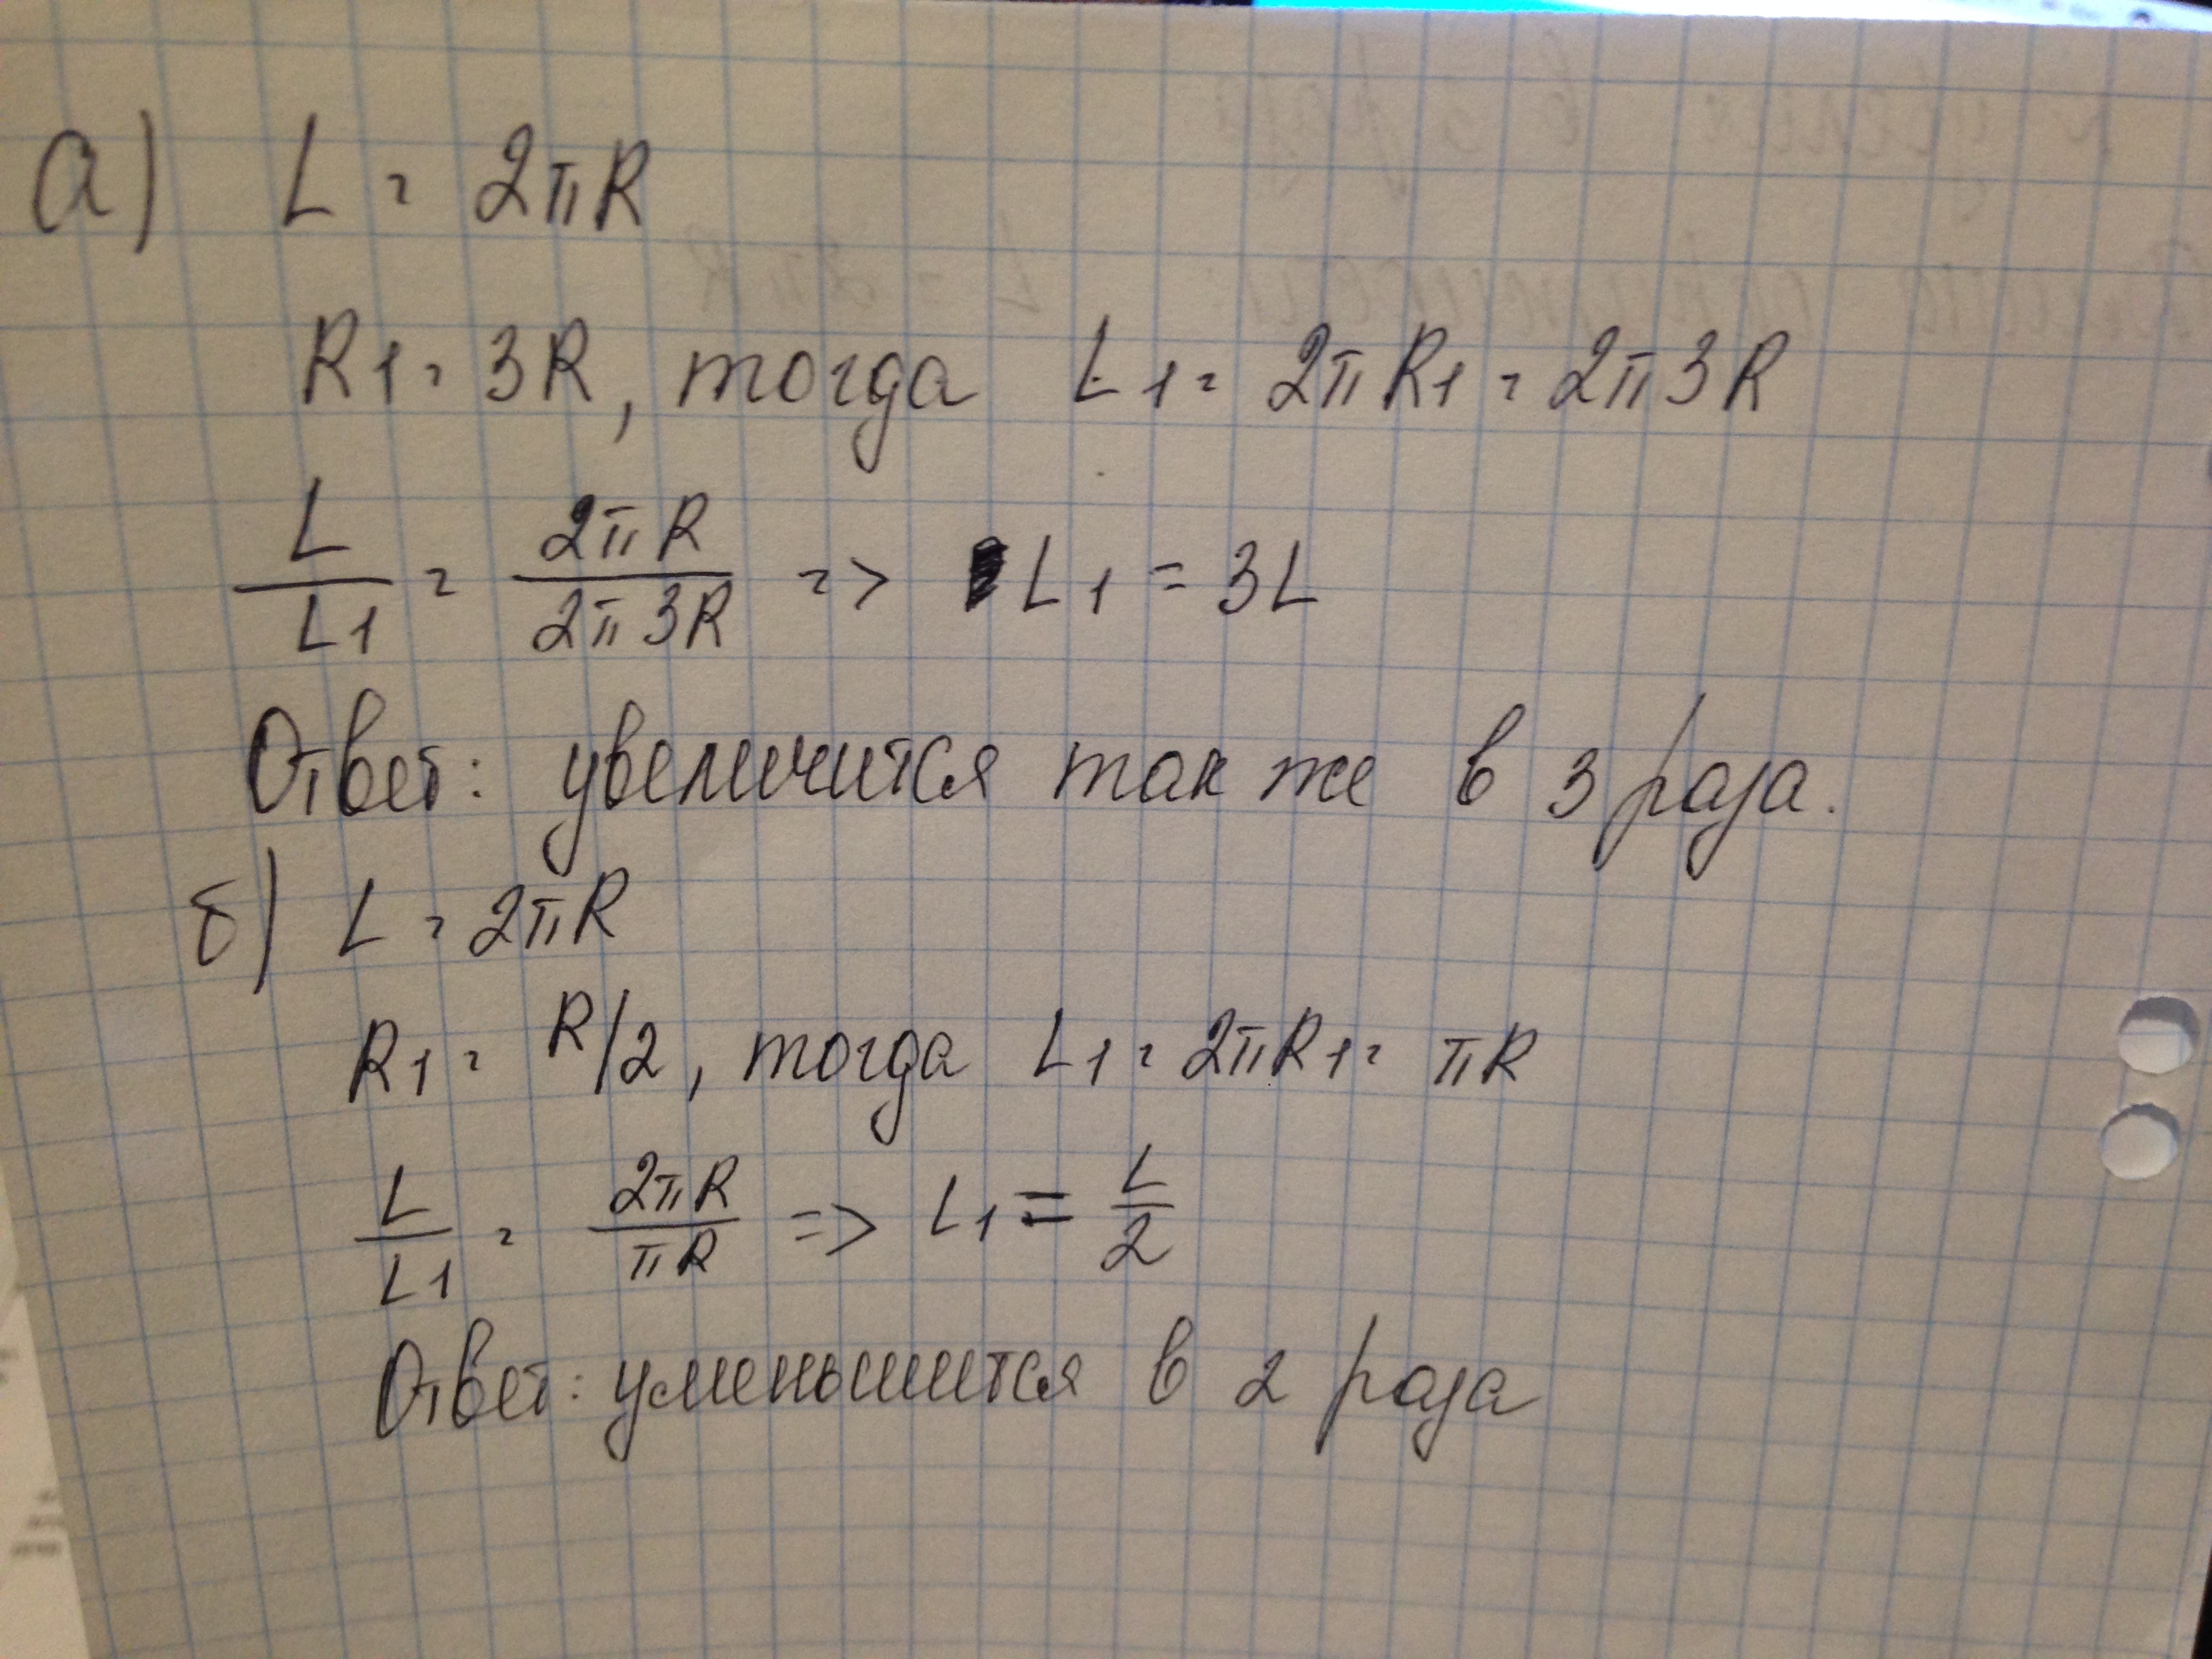 а) L = 2πR
R1 = 3R, тогда L1 = 2πR1 = 2π3R
L/L1 = 2πR/2π3R => L1 = 3L
Ответ: увеличится так же в 3 раза.
б) L = 2πR
R1 = R/2, тогда L1 = 2πR1 = πR
L/L1 = 2πR/πR => L1 = L/2
Ответ: уменьшится в 2 раза